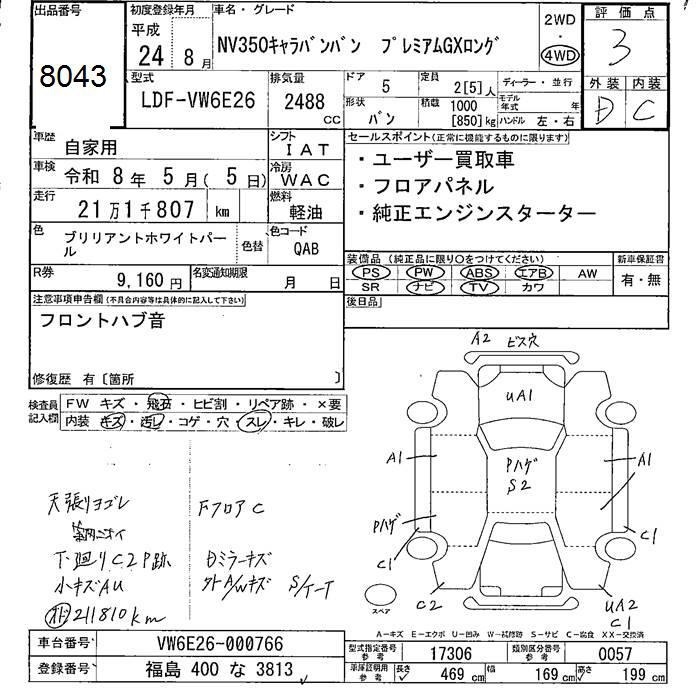 出品番号 初度登録年月 車名・グレード 2WD 評価点
平成
24 8月 NV350キャラバンバン プレミアムGXロング ・ 4WD 3
8043
型式 排気量 ドア 5 定員 2[5]人 ディーラー・並行 外装 内装
LDF-VW6E26 2488 CC 形状 バン 積載 1000 [850]kg モデル年式 年 ハンドル 左・右 D C
車歴 自家用 シフト IAT セールスポイント(正常に機能するものに限ります)
車検 令和 8年 5月( 5日) 冷房 WAC ・ユーザー買取車
・フロアパネル
走行 21万1千807 km 燃料 軽油 ・純正エンジンスターター
色 ブリリアントホワイトパール 色替 色コード QAB
装備品(純正品に限り○をつけてください) 新車保証書
PS PW ABS エアB AW 有・無
R券 9,160円 名変通知期限 月 日 SR ナビ TV カワ
注意事項申告欄(不具合内容等は具体的に記入して下さい) 後日品
フロントハブ音
修復歴 有〔箇所 〕
検査員記入欄 FW キズ・飛石・ヒビ割・リペア跡・×要
内装 キズ・汚レ・コゲ・穴・スレ・キレ・破レ
A2 ビス穴
UA1
A1 Pハゲ S2 A1
Pハゲ
C1 C1
C2 UA2
C1
スペア
天張りヨゴレ FフロアC
室内ニオイ
下廻りC2P跡 Dミラーキズ
小キズAU 外A/Wキズ S/ケース
211810km
A-キズ E-エクボ U-凹み W-補修跡 S-サビ C-腐食 XX-交換済
車台番号 VW6E26-000766 型式指定番号 参考 17306 類別区分番号 参考 0057
登録番号 福島 400 な 3813 車庫証明用 参考 長さ 469 cm 幅 169 cm 高さ 199 cm